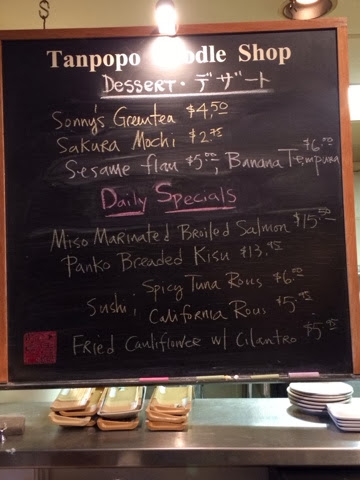 Tanpopo Noodle Shop
Dessert・デザート
Sonny's Greentea $4.50
Sakura Mochi $2.75
Sesame flau $5.00, Banana Tempura $6.50
Daily Specials
Miso Marinated Broiled Salmon $15.50
Panko Breaded Kisu $13.95
Spicy Tuna Rolls $6.50
Sushi; California Rolls $5.95
Fried Cauliflower w/ Cilantro $5.95